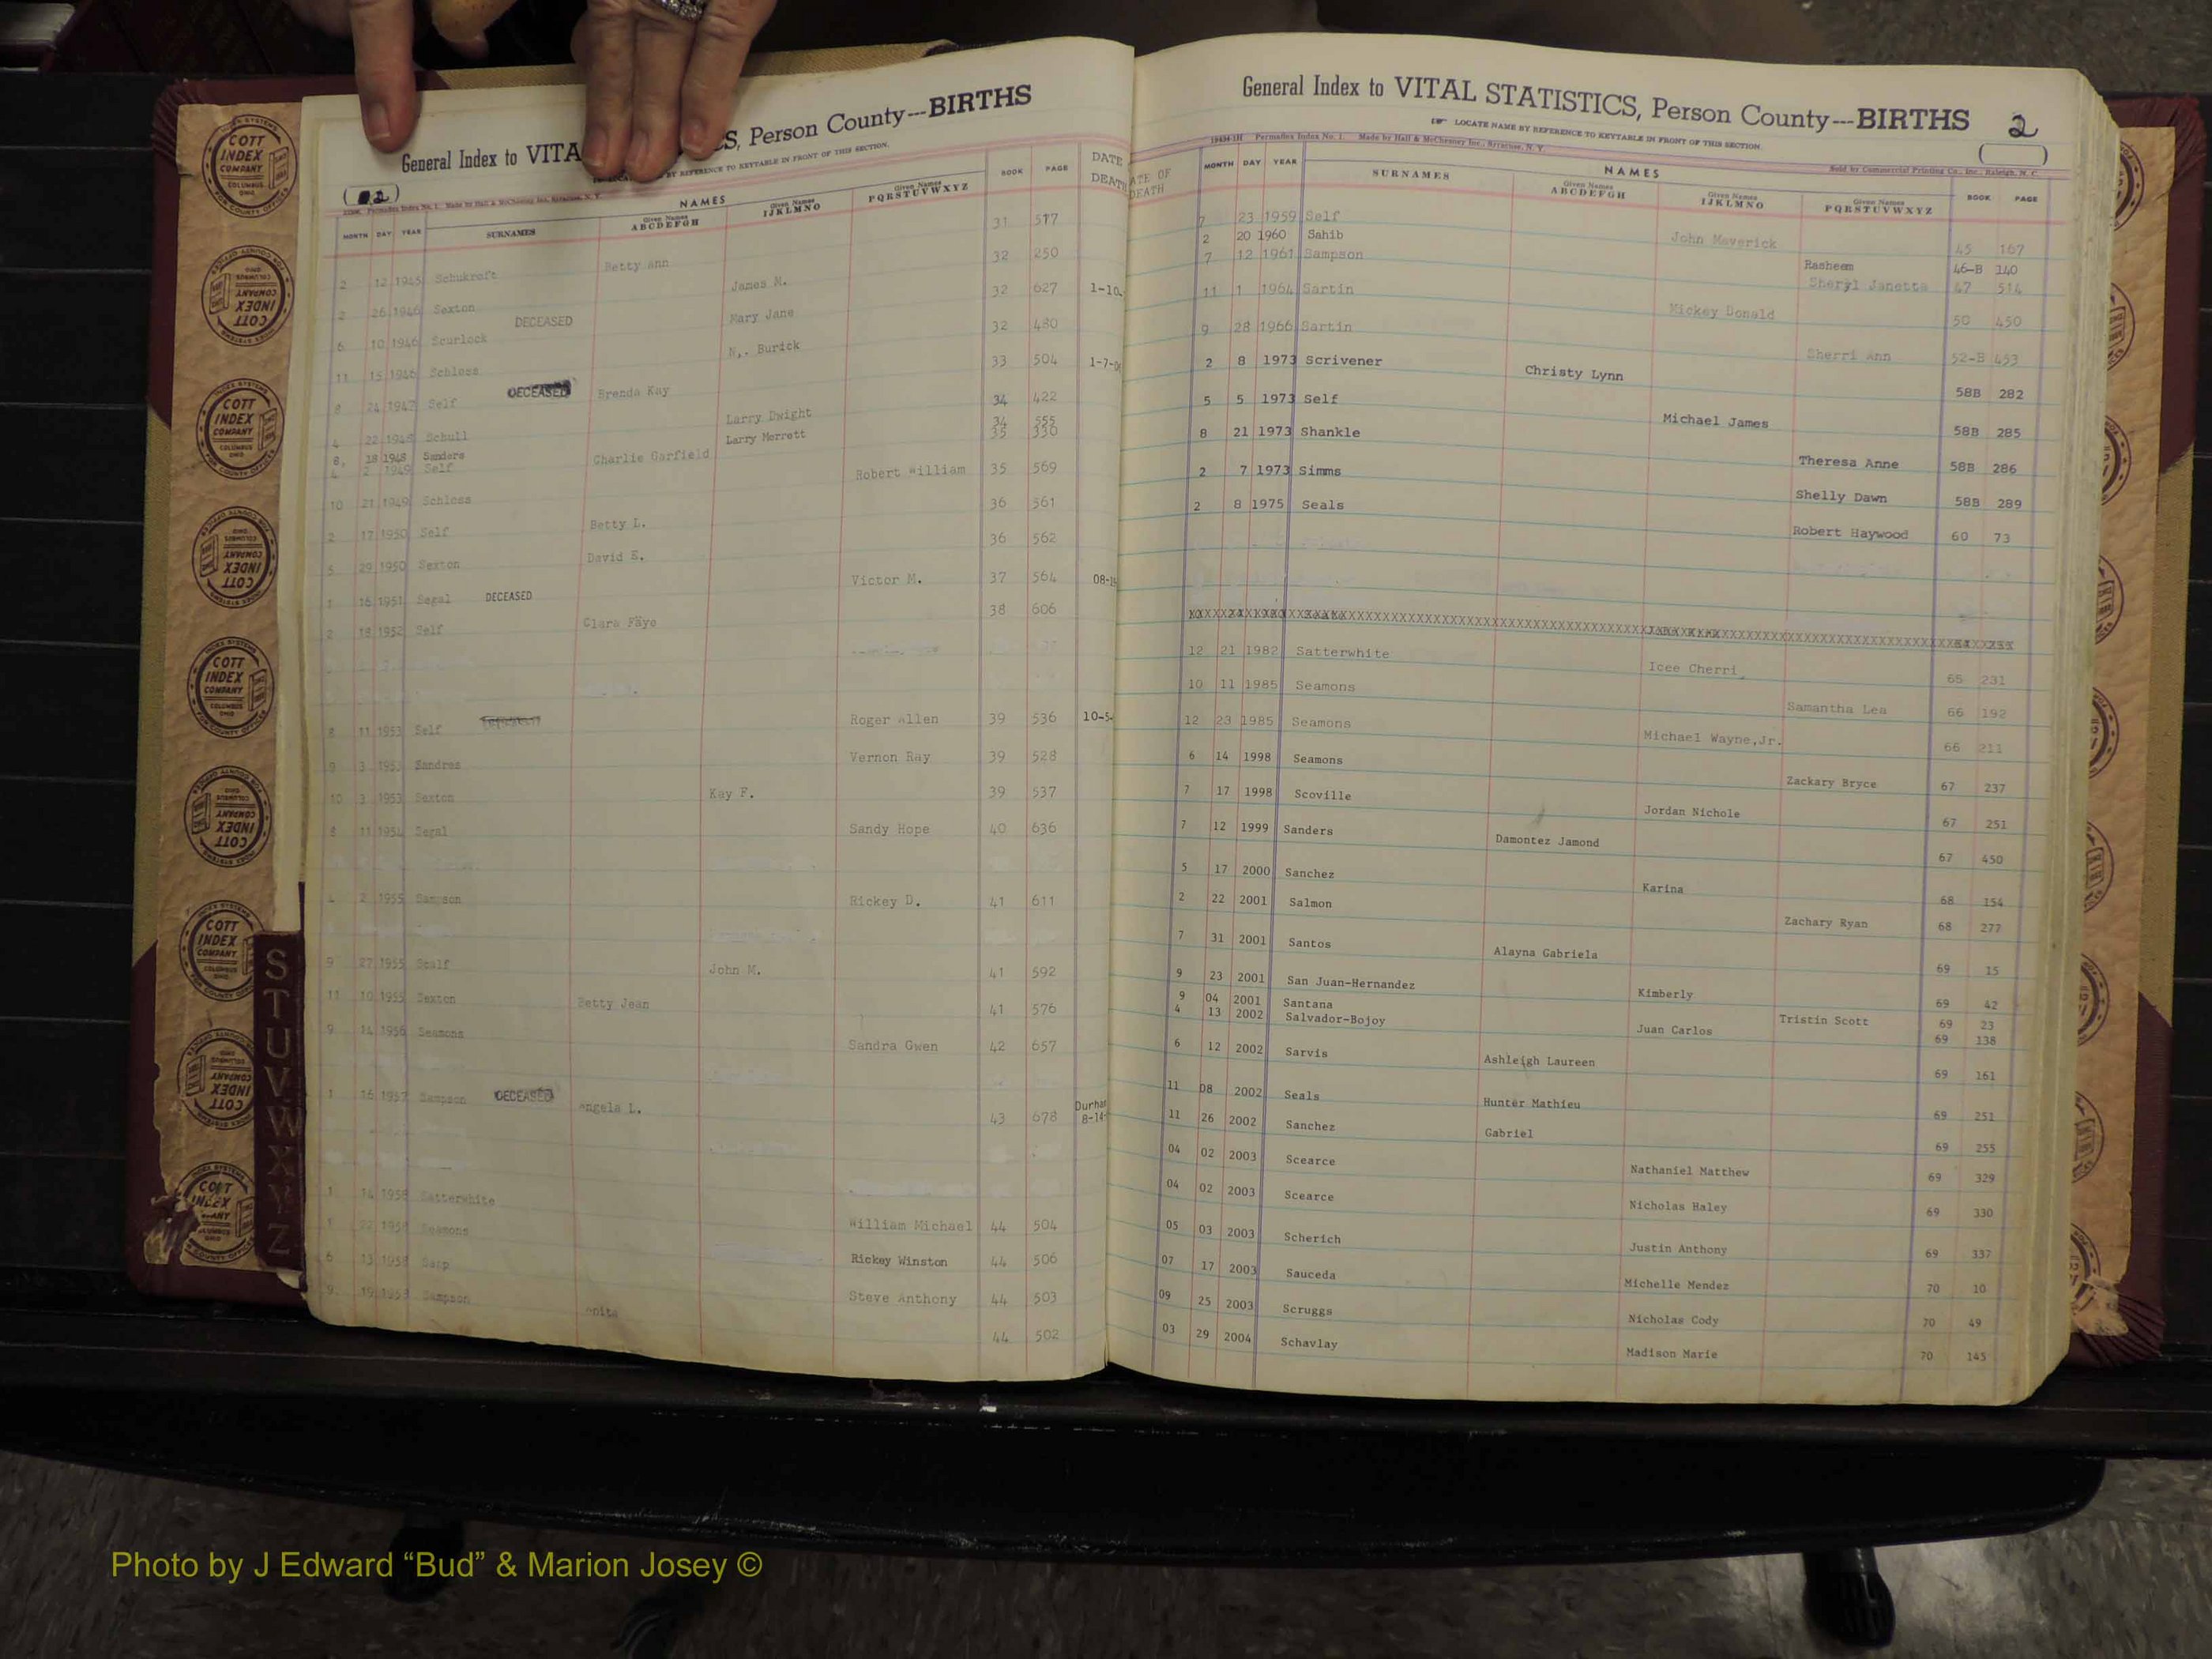 General Index to VITA S, Person County---BIRTHS
BY REFERENCE TO KEYTABLE IN FRONT OF THIS SECTION.
MONTH DAY YEAR SURNAMES NAMES Given Names ABCDEFGH Given Names IJKLMNO Given Names PQRSTUVWXYZ BOOK PAGE DATE DEATH
31 517
2 12 1945 Schukroft Betty Ann 32 250
2 26 1946 Sexton James M. 32 627 1-10-
6 10 1946 Scurlock DECEASED Mary Jane 32 480
11 15 1946 Schloss N,. Burick 33 504 1-7-0
8 24 1947 Self DECEASED Brenda Kay 34 422
4 22 1948 Schull Larry Dwight 34 555
8, 18 1948 Sanders Larry Merrett 35 330
4 2 1949 Self Charlie Garfield
10 21 1949 Schloss Robert William 35 569
2 17 1950 Self Betty L. 36 561
5 29 1950 Sexton David E. 36 562
1 16 1951 Segal DECEASED Victor M. 37 564 08-1
2 18 1952 Self Clara Faye 38 606
8 11 1953 Self Roger Allen 39 536 10-5-
9 3 1953 Sandres Vernon Ray 39 528
10 3 1953 Sexton Kay F. 39 537
8 11 1954 Segal Sandy Hope 40 636
4 2 1955 Sampson Rickey D. 41 611
9 27 1955 Scalf John M. 41 592
11 10 1955 Sexton Betty Jean 41 576
9 14 1956 Seamons Sandra Gwen 42 657
1 16 1957 Sampson DECEASED Angela L. 43 678 Durha 8-14-
1 14 1958 Satterwhite William Michael 44 504
1 22 1958 Seamons Rickey Winston 44 506
6 13 1958 Steve Anthony 44 503
9 19 1958 Sampson Anita 44 502
General Index to VITAL STATISTICS, Person County---BIRTHS 2
LOCATE NAME BY REFERENCE TO KEYTABLE IN FRONT OF THIS SECTION
Permaflex Index No. 1. Made by Hall & McChesney Inc., Syracuse, N. Y. Sold by Commercial Printing Co., Inc., Raleigh, N. C.
ATE OF DEATH MONTH DAY YEAR SURNAMES NAMES Given Names ABCDEFGH Given Names IJKLMNO Given Names PQRSTUVWXYZ BOOK PAGE
7 23 1959 Self John Maverick 45 167
2 20 1960 Sahib Rasheem 46-B 140
7 12 1961 Sampson Sheryl Janette 47 514
11 1 1964 Sartin Mickey Donald 50 450
9 28 1966 Sartin Sherri Ann 52-B 453
2 8 1973 Scrivener Christy Lynn 58B 282
5 5 1973 Self Michael James 58B 285
8 21 1973 Shankle Theresa Anne 58B 286
2 7 1973 Simms Shelly Dawn 58B 289
2 8 1975 Seals Robert Haywood 60 73
12 21 1982 Satterwhite Icee Cherri 65 231
10 11 1985 Seamons Samantha Lea 66 192
12 23 1985 Seamons Michael Wayne,Jr. 66 211
6 14 1998 Seamons Zackary Bryce 67 237
7 17 1998 Scoville Jordan Nichole 67 251
7 12 1999 Sanders Damontez Jamond 67 450
5 17 2000 Sanchez Karina 68 154
2 22 2001 Salmon Zachary Ryan 68 277
7 31 2001 Santos Alayna Gabriela 69 15
9 23 2001 San Juan-Hernandez Kimberly 69 42
9 04 2001 Santana Tristin Scott 69 23
4 13 2002 Salvador-Bojoy Juan Carlos 69 138
6 12 2002 Sarvis Ashleigh Laureen 69 161
11 08 2002 Seals Hunter Mathieu 69 251
11 26 2002 Sanchez Gabriel 69 255
04 02 2003 Scearce Nathaniel Matthew 69 329
04 02 2003 Scearce Nicholas Haley 69 330
05 03 2003 Scherich Justin Anthony 69 337
07 17 2003 Sauceda Michelle Mendez 70 10
09 25 2003 Scruggs Nicholas Cody 70 49
03 29 2004 Schavlay Madison Marie 70 145
S
T
U
V
W
X
Y
Z
COTT INDEX COMPANY COLUMBUS OHIO
INDEX SYSTEMS FOR COUNTY OFFICES
Photo by J Edward “Bud” & Marion Josey ©